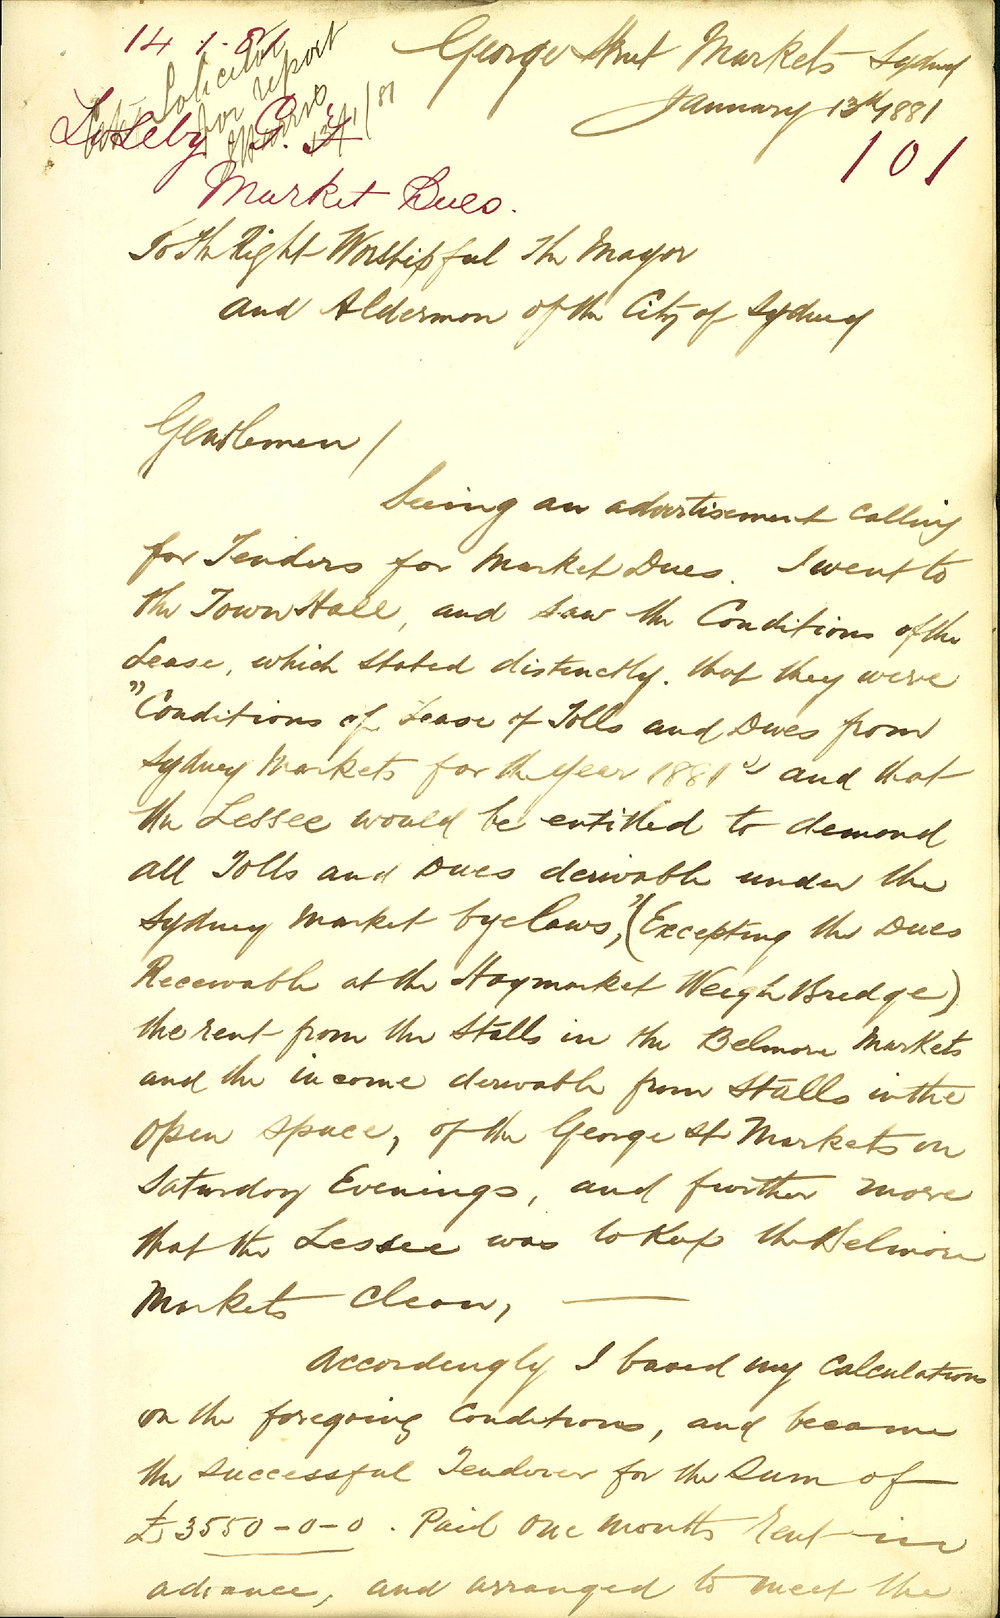 14.1.81
George Street Markets Sydney
January 13th 1881
Solicitor
for report
13/1/81
101
Market Dues.
To The Right Worshipful The Mayor
and Aldermen of the City of Sydney
Gentlemen/
Seeing an advertisement calling
for Tenders for Market Dues. I went to
the Town Hall, and saw the Conditions of the
Lease, which stated distinctly. that they were
"Conditions of Lease of Tolls and Dues from
Sydney Markets for the year 1881" and that
the Lessee would be entitled to demand
all Tolls and Dues derivable under the
Sydney Market bye laws," (Excepting the Dues
Receivable at the Haymarket Weigh Bridge)
the rent from the Stalls in the Belmore Markets
and the income derivable from Stalls in the
open space, of the George St Markets on
Saturday Evenings, and further more
that the Lessee was to Keep the Belmore
Markets Clean, —
Accordingly I based my Calculations
on the foregoing Conditions, and became
the successful Tenderer for the Sum of
£3550-0-0. Paid one months rent in
advance, and arranged to meet the